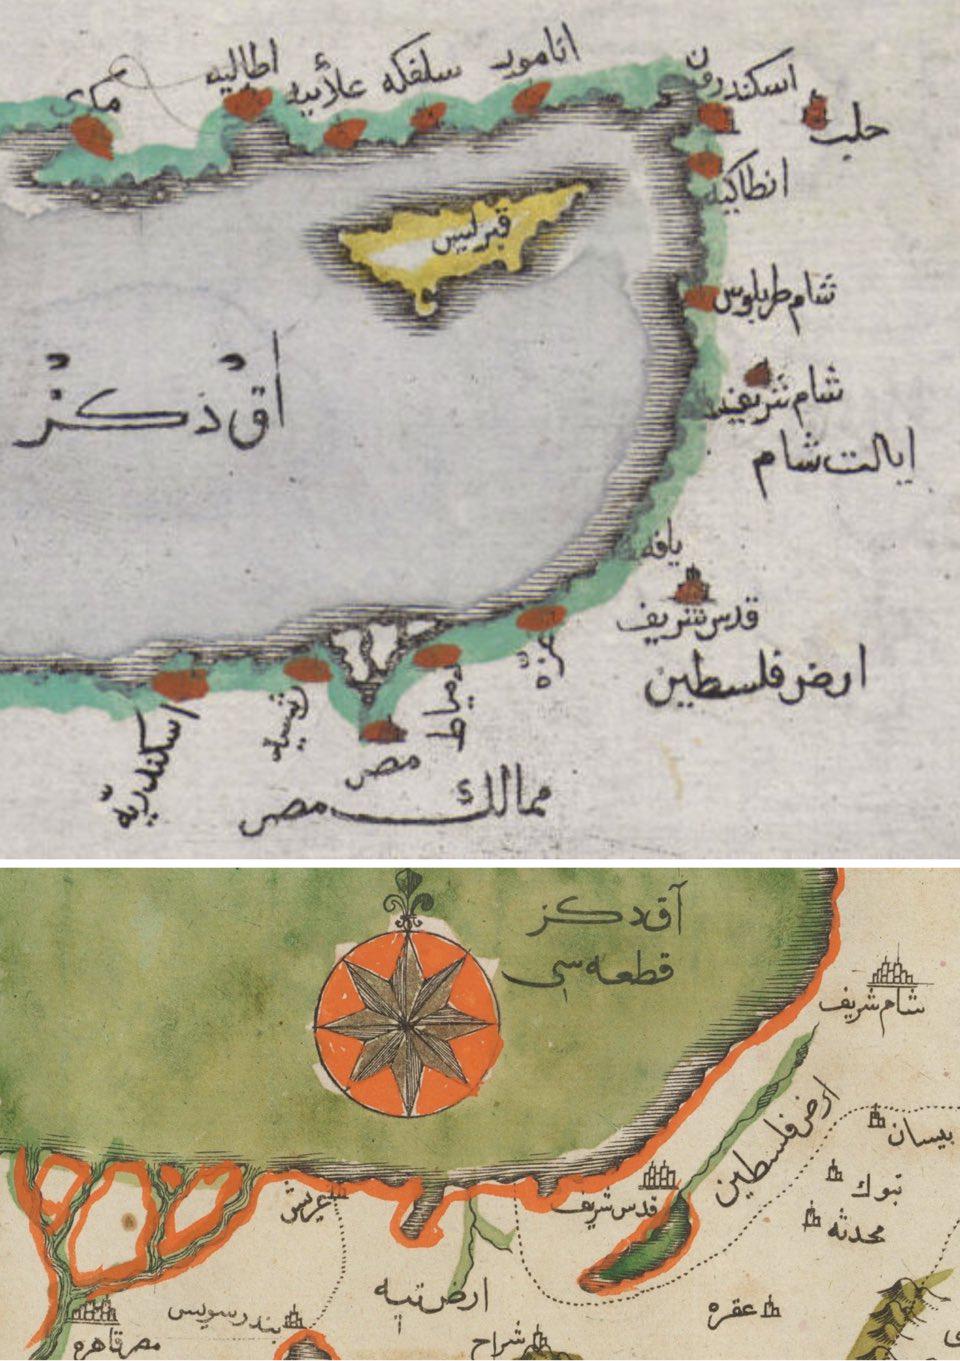 انامور
سلفكه
علائيه
اطاليه
مكری
اسكندرون
حلب
انطاكيه
قبرس
شام طربلوس
آق دكز
شام شريف
ايالت شام
يافه
قدس شريف
ارض فلسطين
غزه
دمياط
رشيد
اسكندريه
مصر
ممالك مصر
آق دكز
قطعه سی
شام شريف
ارض فلسطين
بيسان
تبوك
محدثه
قدس شريف
عريش
ارض تيه
عقره
بندر سويس
شراح
مصر قاهره